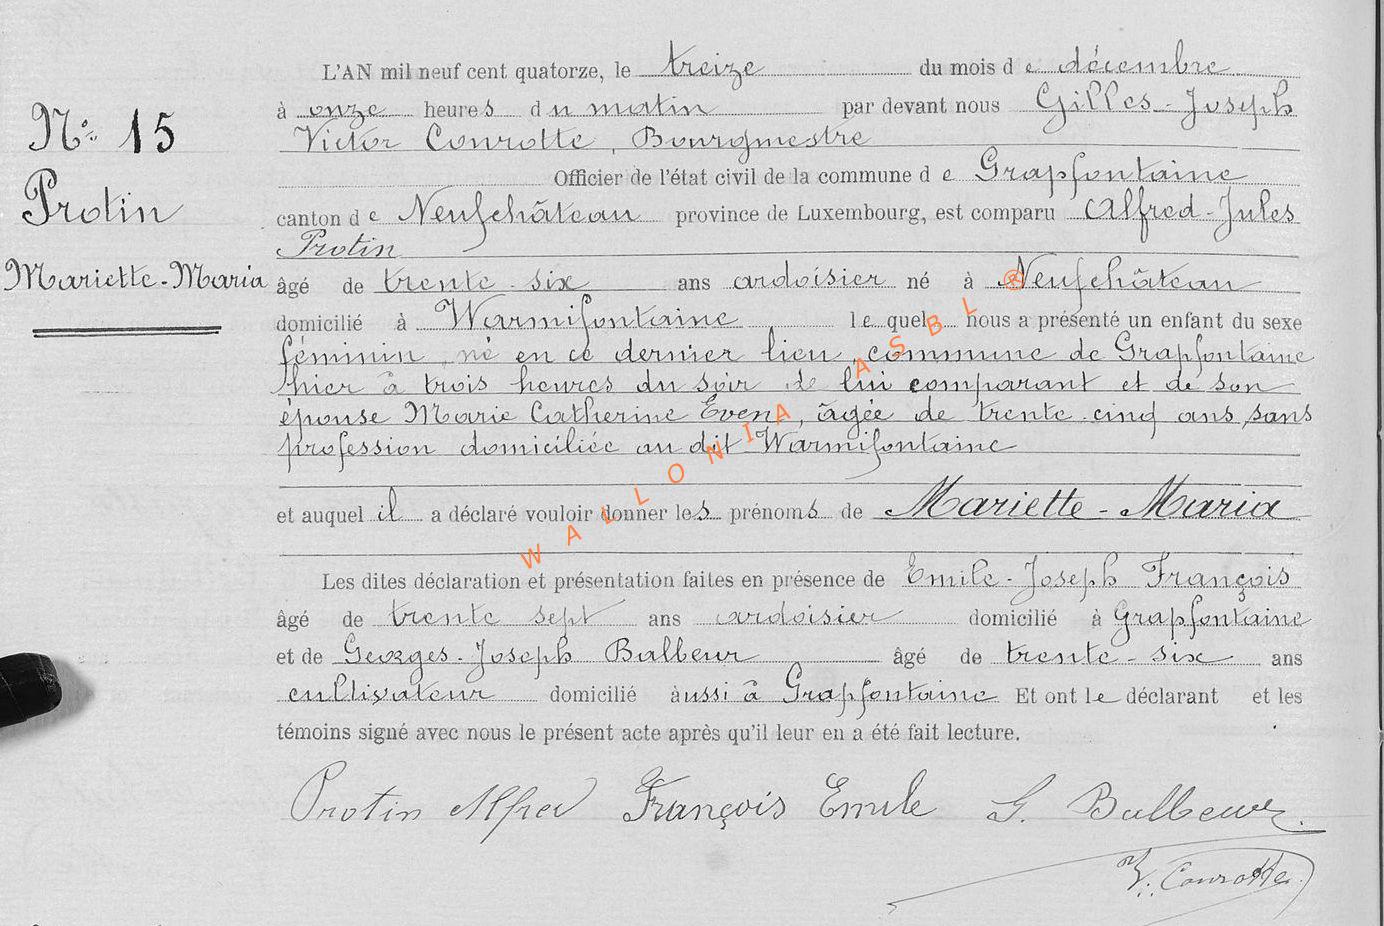 L'AN mil neuf cent quatorze, le treize du mois de décembre
à onze heures du matin par devant nous Gilles-Joseph
Victor Conrotte, Bourgmestre
Officier de l'état civil de la commune de Grapfontaine
canton de Neufchâteau province de Luxembourg, est comparu Alfred-Jules
Protin
âgé de trente-six ans ardoisier né à Neufchâteau
domicilié à Warmifontaine lequel nous a présenté un enfant du sexe
féminin, né en ce dernier lieu, commune de Grapfontaine
hier à trois heures du soir de lui comparant et de son
épouse Marie Catherine Even, âgée de trente-cinq ans, sans
profession domiciliée au dit Warmifontaine
et auquel il a déclaré vouloir donner les prénoms de Mariette-Maria
Les dites déclaration et présentation faites en présence de Emile-Joseph François
âgé de trente sept ans ardoisier domicilié à Grapfontaine
et de Georges-Joseph Balbeur âgé de trente-six ans
cultivateur domicilié aussi à Grapfontaine Et ont le déclarant et les
témoins signé avec nous le présent acte après qu'il leur en a été fait lecture.
Protin Alfred François Emile G. Balbeur
V. Conrotte
No 15
Protin
Mariette-Maria
WALLONIA ASBL ®